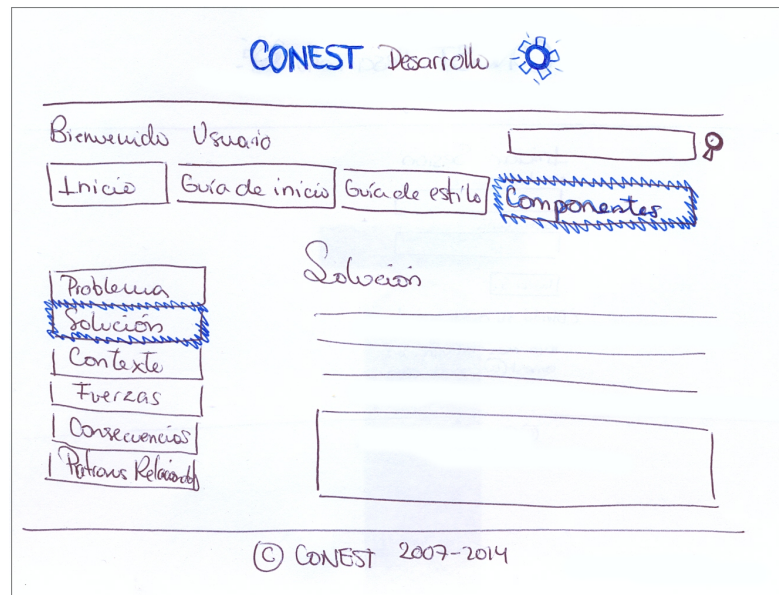 CONEST Desarrollo
Bienvenido Usuario
Inicio Guía de inicio Guía de estilo Componentes
Solución
Problema
Solución
Contexte
Fuerzas
Consecuencias
Patrons Relacionados
© CONEST 2007-2014